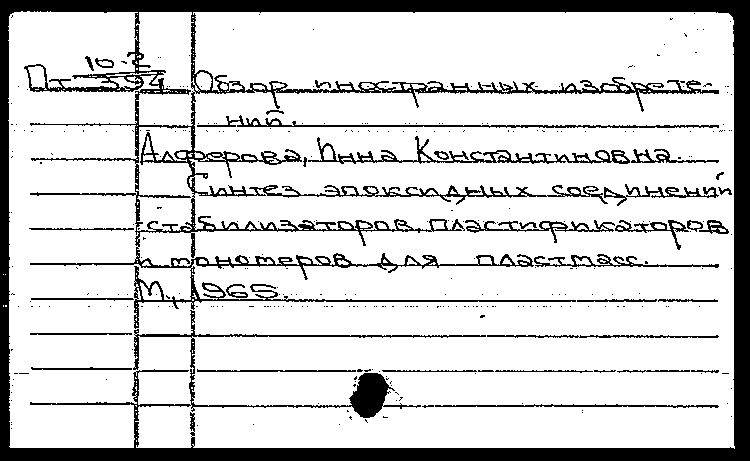 10.2
Пт 394 Обзор иностранных изобрете-
ний.
Алферова, Инна Константиновна.
Синтез эпоксидных соединений
-стабилизаторов, пластификаторов
и мономеров для пластмасс.
М., 1965.